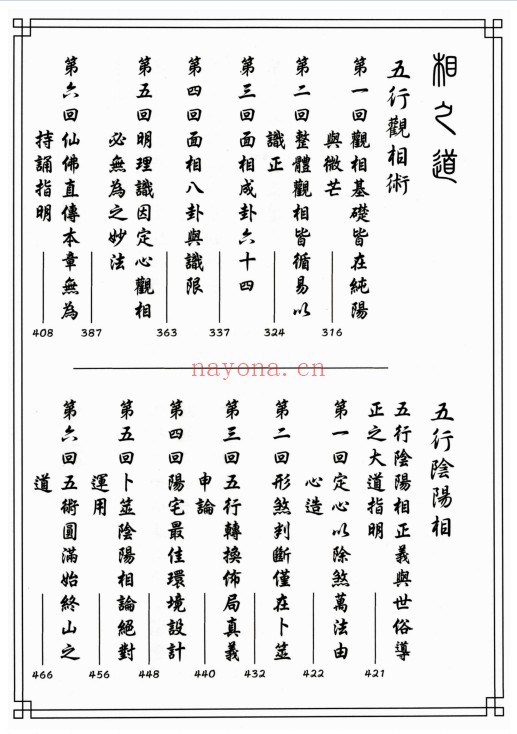 相之道
五行觀相術
第一回觀相基礎皆在純陽
與微芒
316
第二回整體觀相皆循易以
識正
324
第三回面相成卦六十四
337
第四回面相八卦與識限
363
第五回明理識因定心觀相
必無為之妙法
387
第六回仙佛直傳本章無為
持誦指明
408
nayona.cn
五行陰陽相
五行陰陽相正義與世俗導
正之大道指明
421
第一回定心以除煞萬法由
心造
422
第二回形煞判斷僅在卜筮
432
第三回五行轉換佈局真義
申論
440
第四回陽宅最佳環境設計
448
第五回卜筮陰陽相論絕對
運用
456
第六回五術圓滿始終山之
道
466